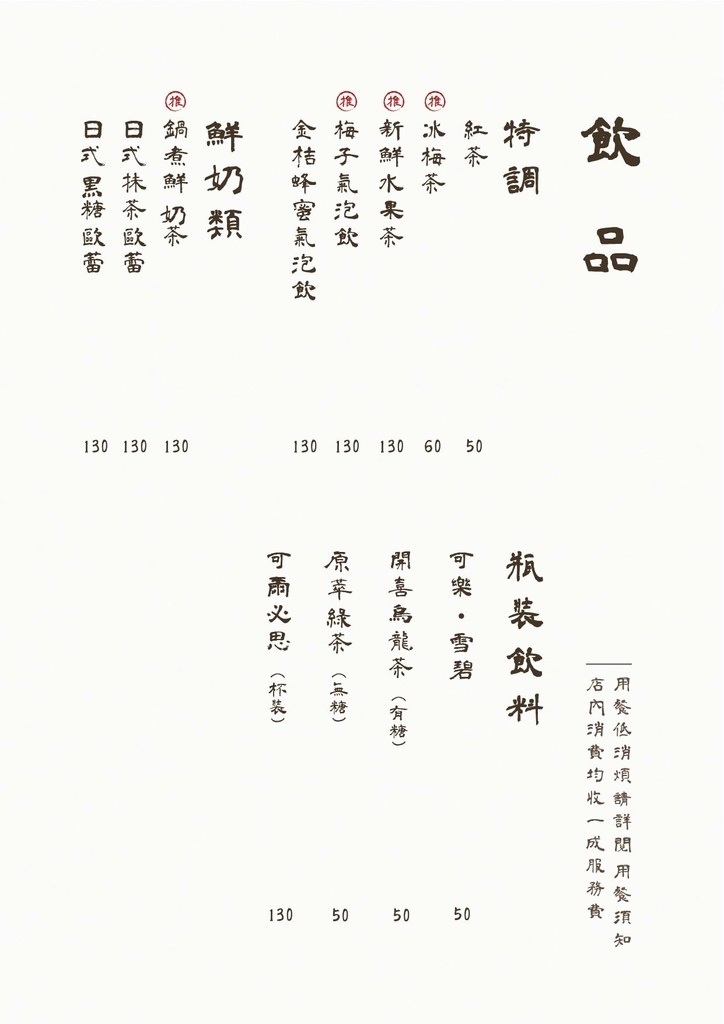 飲品
用餐低消煩請詳閱用餐須知
店內消費均收一成服務費
特調
紅茶 50
推 冰梅茶 60
推 新鮮水果茶 130
推 梅子氣泡飲 130
金桔蜂蜜氣泡飲 130
鮮奶類
推 鍋煮鮮奶茶 130
日式抹茶歐蕾 130
日式黑糖歐蕾 130
瓶裝飲料
可樂・雪碧 50
開喜烏龍茶（有糖） 50
原萃綠茶（無糖） 50
可爾必思（杯裝） 130